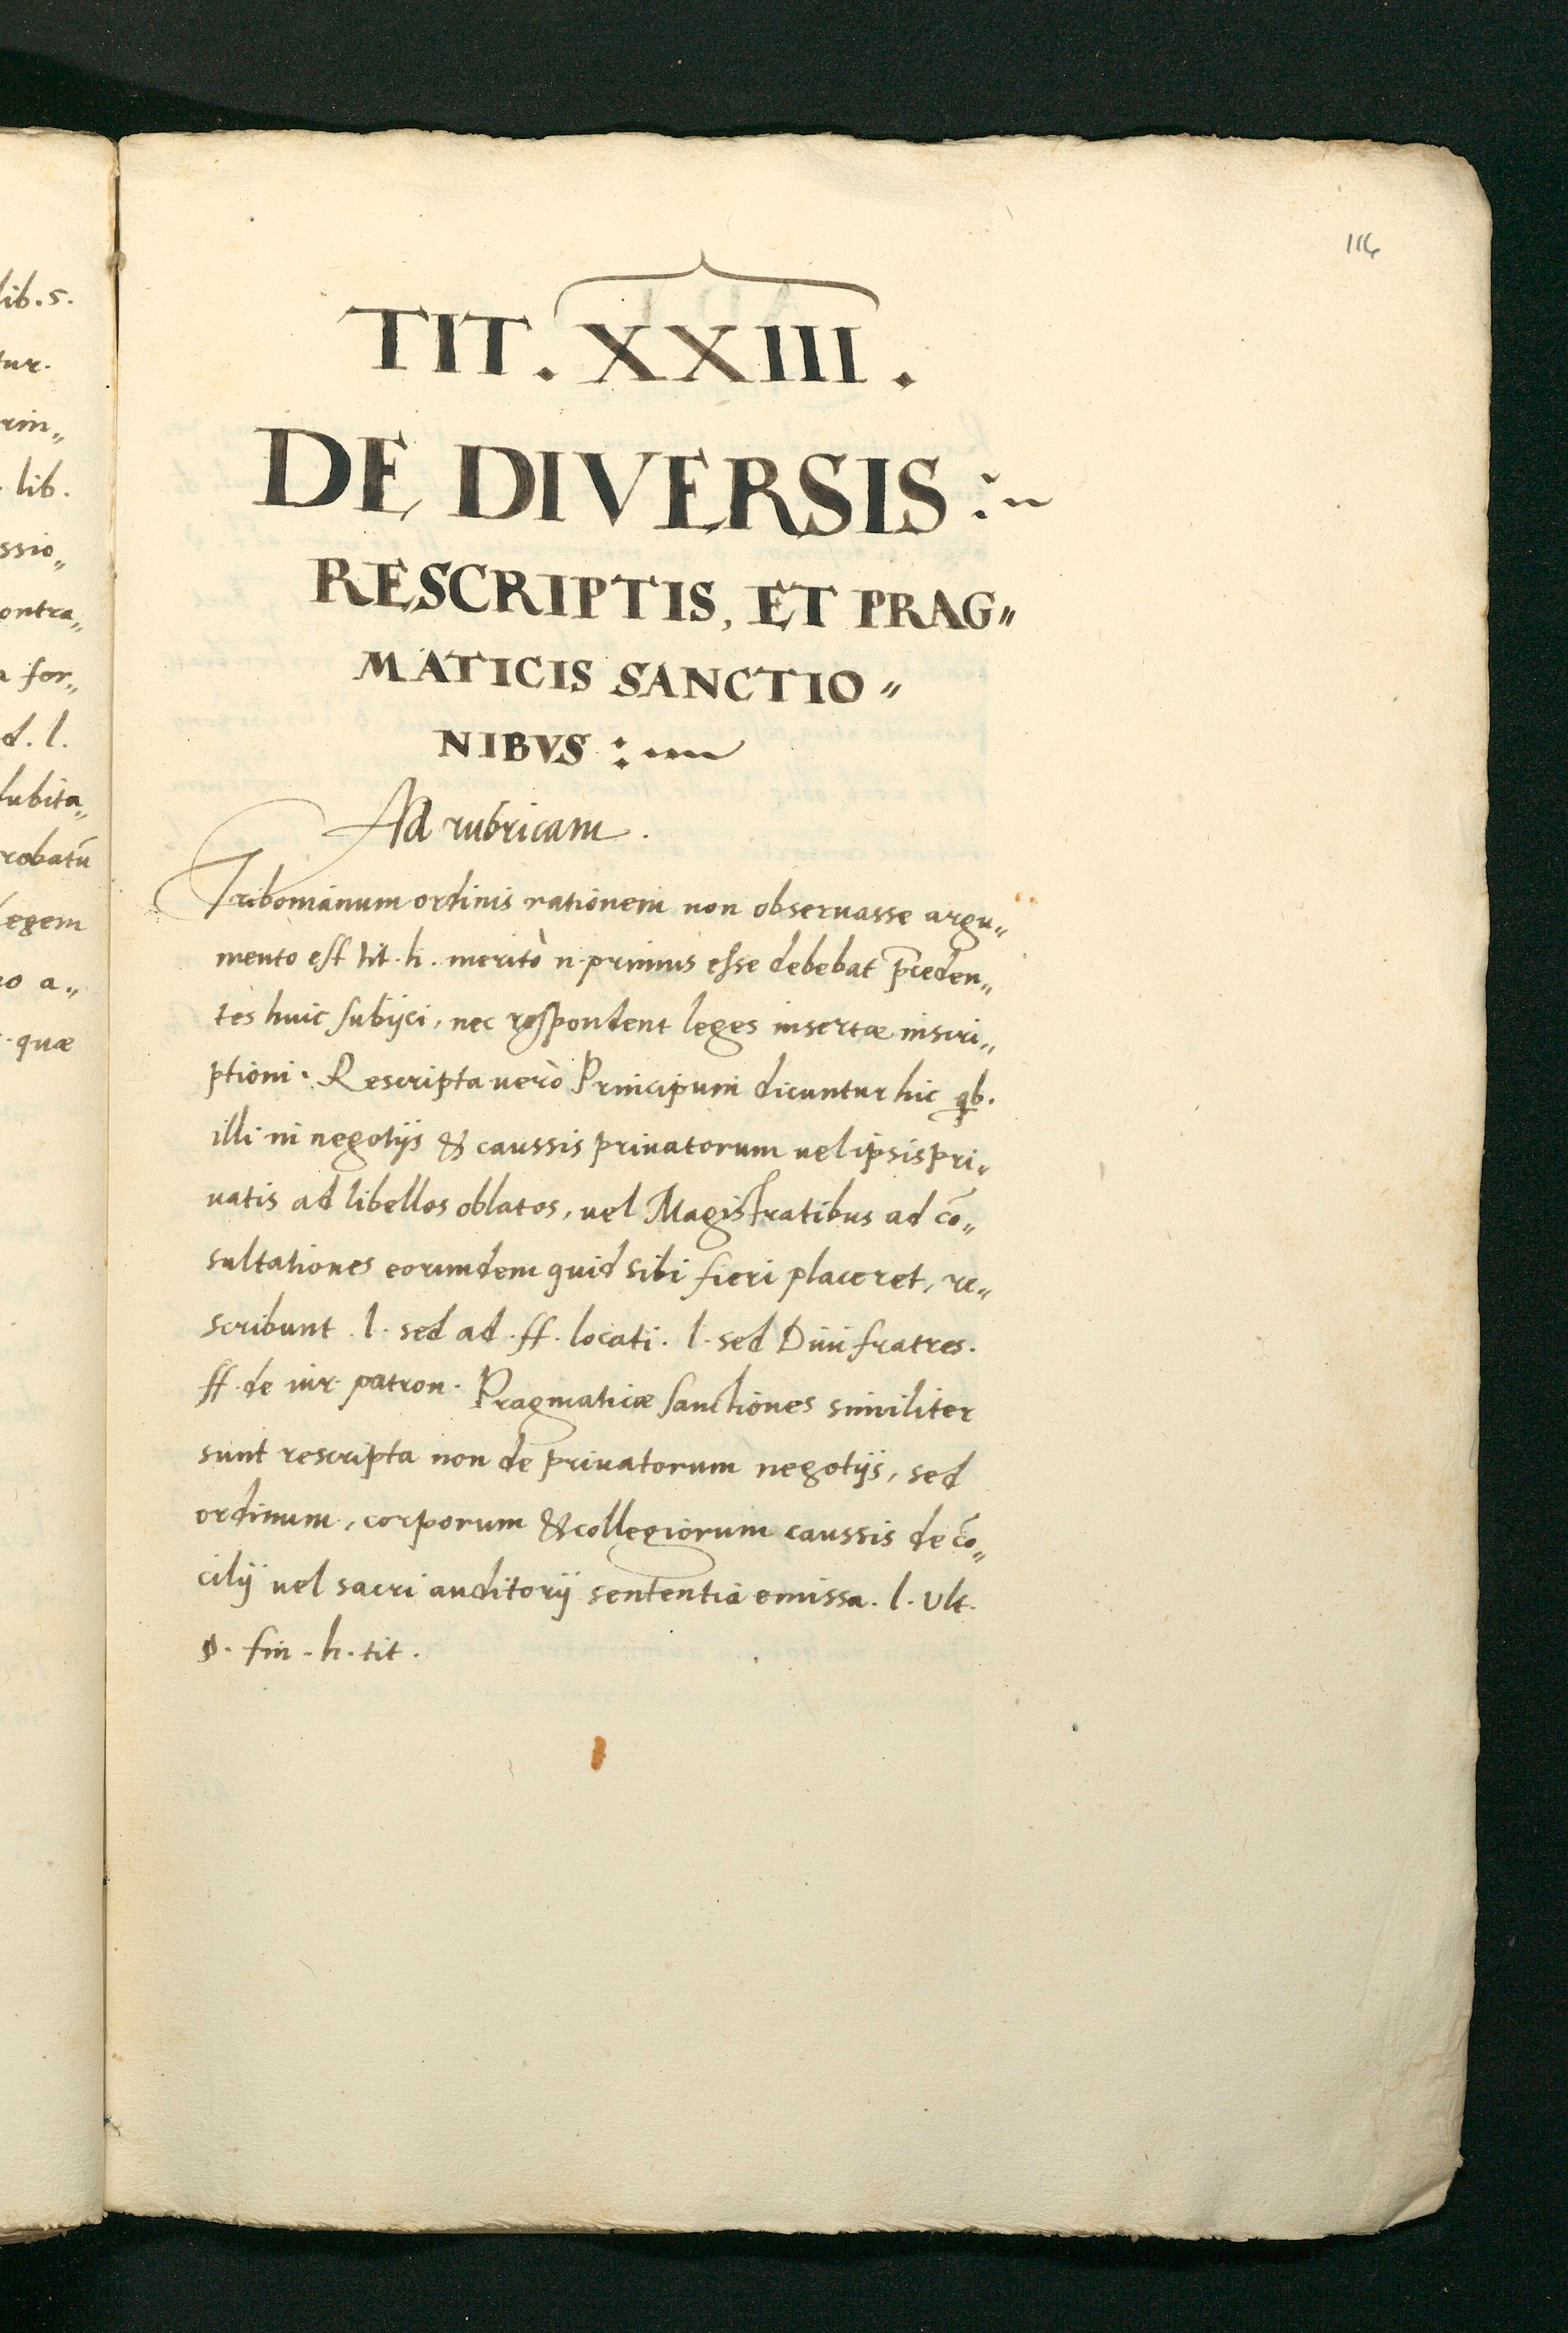 116
TIT. XXIII.
DE DIVERSIS :~
RESCRIPTIS, ET PRAG„
MATICIS SANCTIO„
NIBVS :~
Ad rubricam.
Tribonianum ordinis rationem non obseruasse argu„
mento est tit. h. meritò n. primus esse debebat p̄ceden„
tes huic subijci, nec respondent leges insertæ inscri„
ptioni. Rescripta uerò Principum dicuntur hic qb.
illi in negotijs & caussis priuatorum uel ipsis pri„
uatis ad libellos oblatos, uel Magistratibus ad cō„
sultationes eorumdem quid sibi fieri placeret, re„
scribunt. l. sed ad. ff. locati. l. sed Diui fratres.
ff. de iur. patron. Pragmaticæ sanctiones similiter
sunt rescripta non de priuatorum negotijs, sed
ordinum, corporum & collegiorum caussis de cō„
cilij uel sacri auditorij sententia emissa. l. ult.
§. fin. h. tit.
lib. 5.
tur.
rin„
lib.
ssio„
ontra„
a for„
d. l.
dubita„
robatū
legem
no a„
quæ